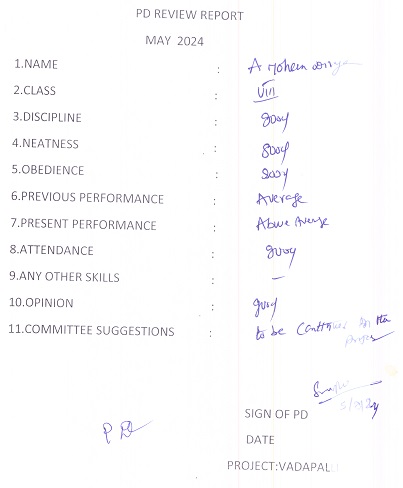 PD REVIEW REPORT
MAY 2024
1.NAME : A
2.CLASS : VIII
3.DISCIPLINE : good
4.NEATNESS : good
5.OBEDIENCE : good
6.PREVIOUS PERFORMANCE : Average
7.PRESENT PERFORMANCE : Above Average
8.ATTENDANCE : good
9.ANY OTHER SKILLS : —
10.OPINION : good
11.COMMITTEE SUGGESTIONS : to be
SIGN OF PD
DATE
PROJECT:VADAPAL